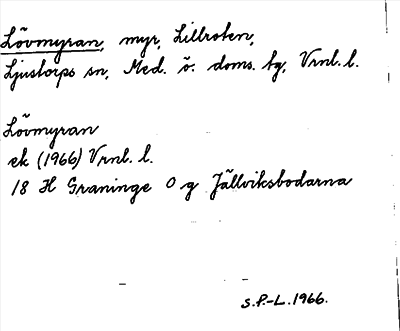 Lövmyran, myr, Lillroten,
Ljustorps sn, Med. ö. doms. tg, Vrnl. l.
Lövmyran
ek (1966) Vrnl. l.
18 H Graninge 0 g Jällviksbodarna
S.P.-L. 1966.